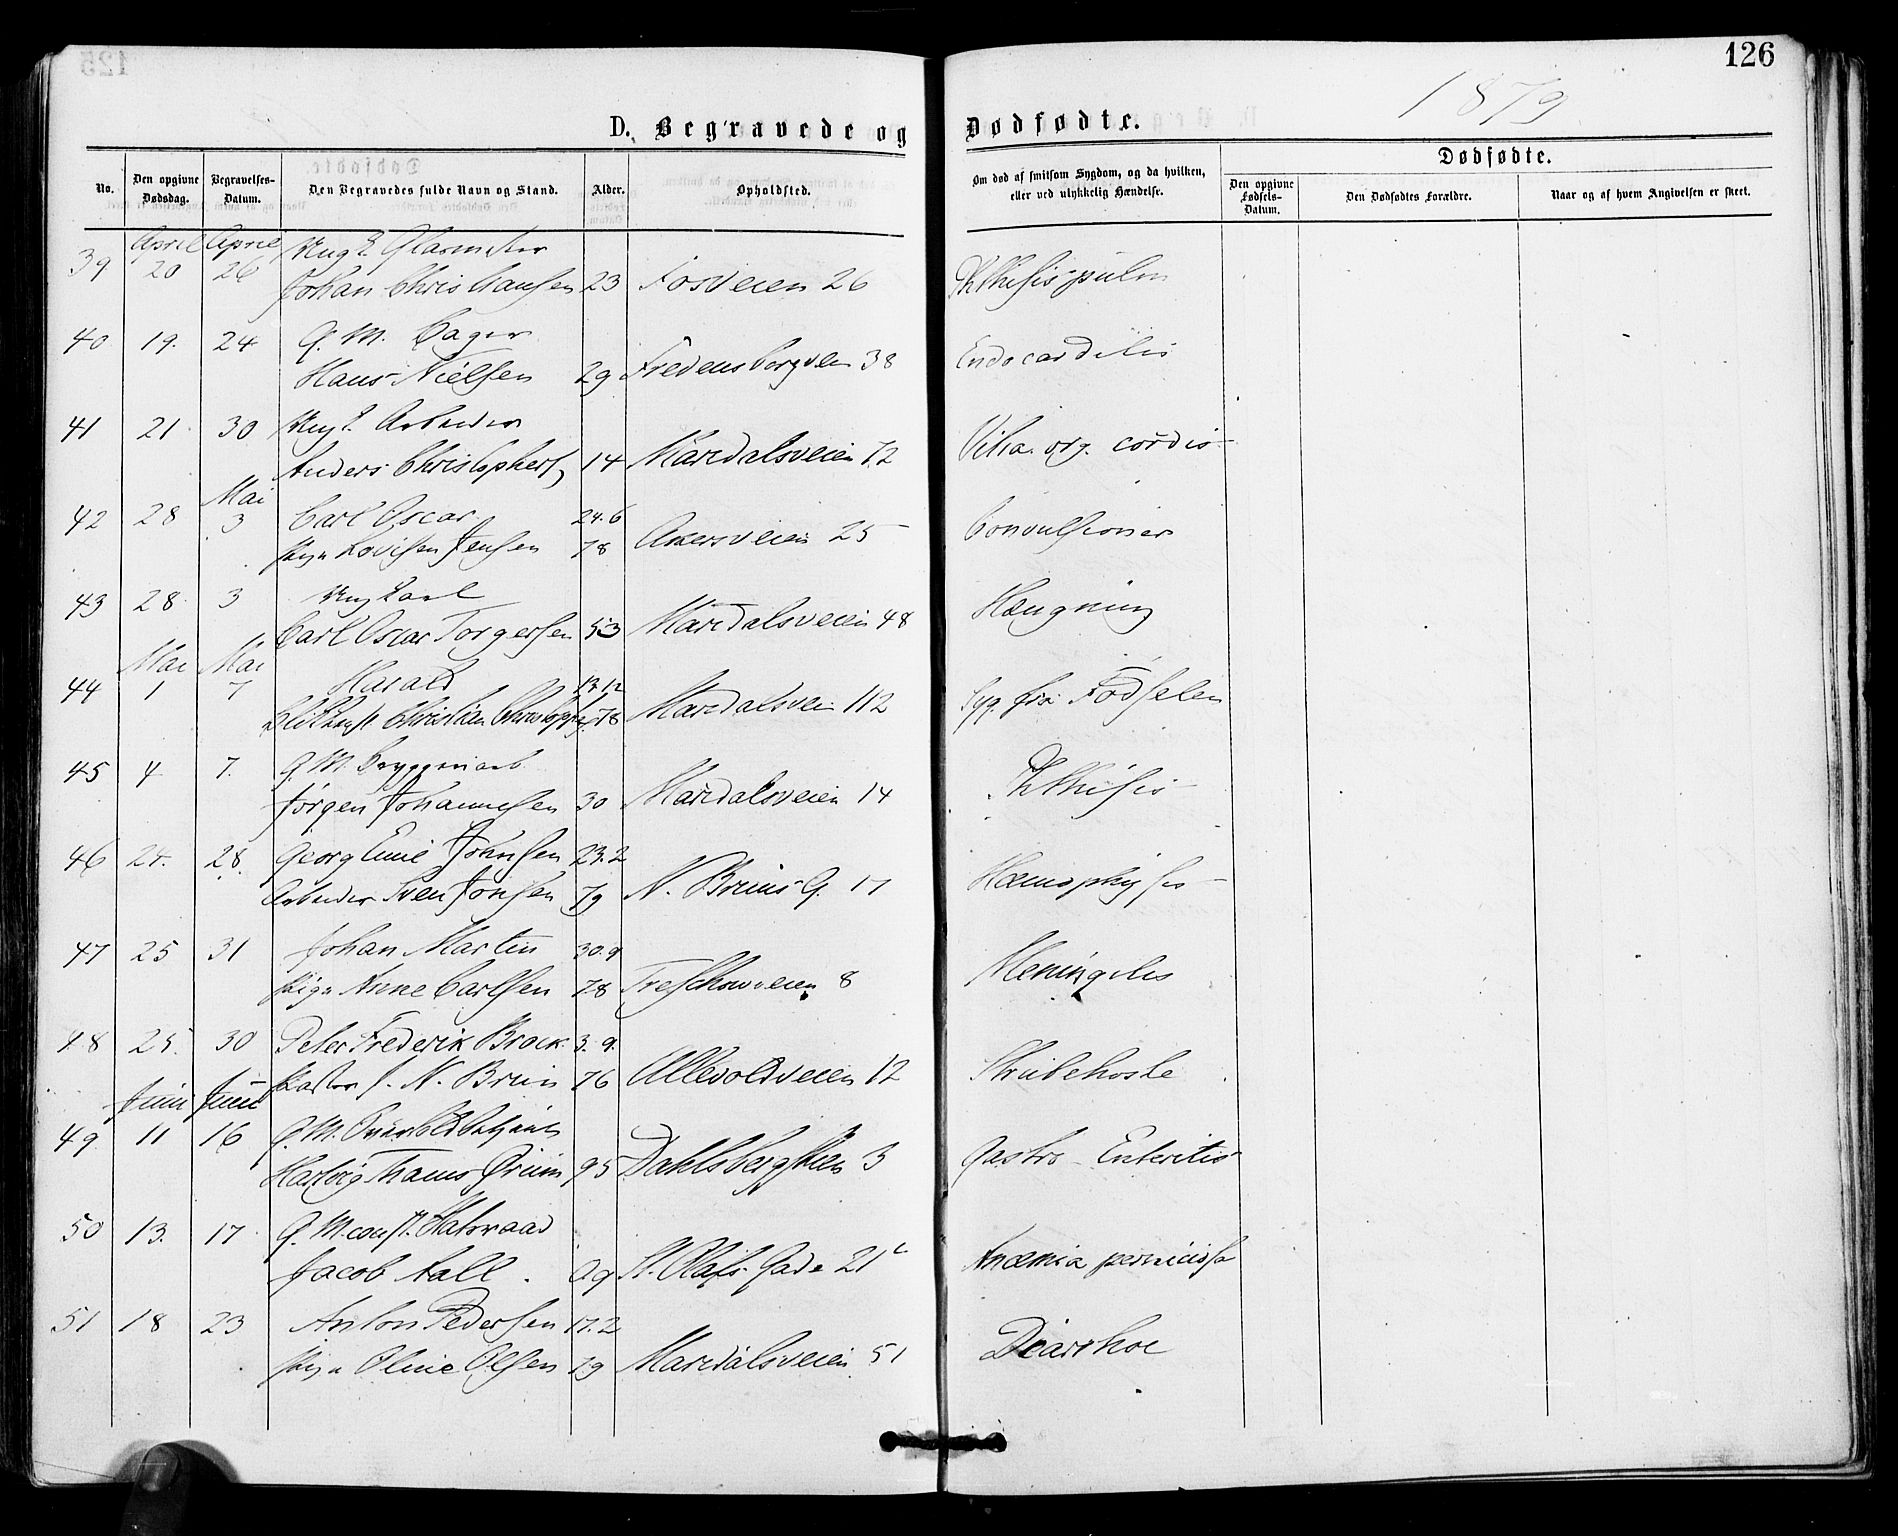 126
1879
D. Begravede og Dødfødte.
No.
Den opgivne Dødsdag.
Begravelses-Datum.
Den Begravedes fulde Navn og Stand.
Alder.
Opholdsted.
Om død af smitsom Sygdom, og da hvilken, eller ved ulykkelig Hændelse.
Dødfødte.
Den opgivne Fødsels-Datum.
Den Dødfødtes Forældre.
Naar og af hvem Angivelsen er skeet.
April April Ungk. Glasmester
39 20 26 Johan Christiansen 23 Fosveien 26 Phthisis pulm
40 19. 24 G. M. Bager
Hans Nielsen 29 Fredensborgveien 38 Endocarditis
41 21 30 Ungk. Arbeider
Anders Christophers 14 Maridalsveien 12 Vitia. org. cordis
Mai
42 28 3 Carl Oscar 24.6
Pige Lovise Jensen 78 Akersveien 25 Convulsioner
43 28 3 Ungkarl
Carl Oscar Torgersen 53 Maridalsveien 48 Hængning
Mai Mai
44 1 7 Harald
Christian 78 Maridalsveien 112 Syg fra Fødselen
45 4 7. G. M. Bryggeriarb.
Jørgen Johannesen 30 Maridalsveien 14 Phthisis
46 24. 28. Georg Emil Johnsen 23.2
Arbeider Sven Jonsen 79 N. Bruns G. 17
47 25 31 Johan Martin 30.9
Pige Anne Carlsen 78 Treschowveien 8 Meningitis
48 25. 30 Peter Frederik Brock 3.9.
Pastor J. N. Brun 76 Ullevoldveien 12 Strubehoste
Juni Juni
49 11 16 G. M.
Hartvig Thams 95 Dahlsbergstien 3 Gastro-Enteritis
50 13. 17 G. M. const. Statsraad
Jacob Aall. St. Olafs Gade 21 Anæmia perniciosa
51 18 23 Anton Pedersen 17.2
Pige Oline Olsen 79 Maridalsveien 51 Diarrhoe